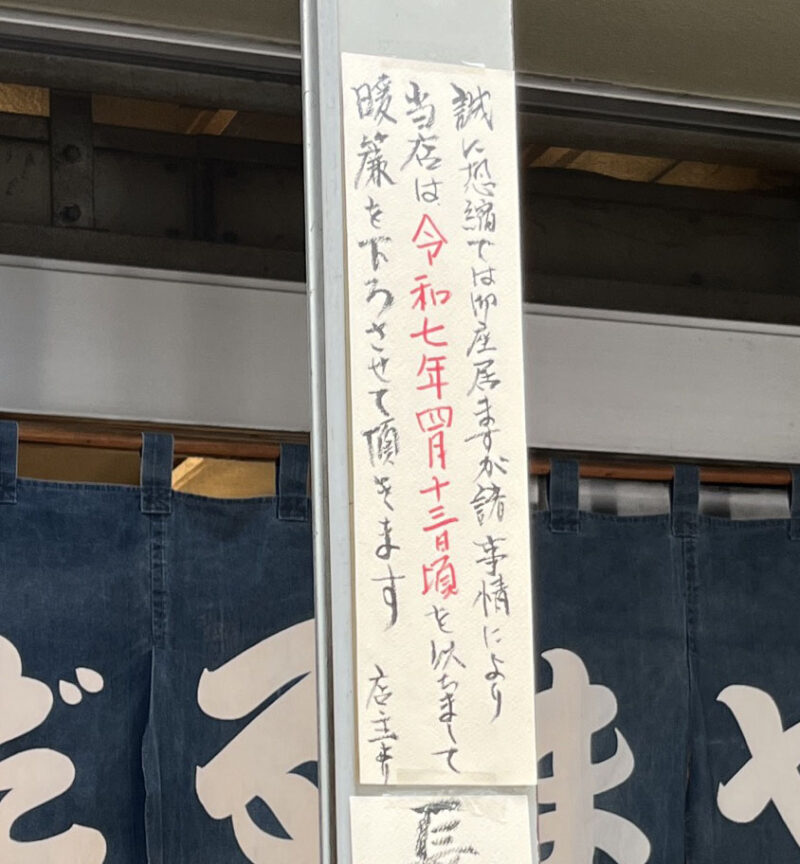 誠に恐縮では御座居ますが諸事情により
当店は令和七年四月十三日頃を以ちまして
暖簾を下ろさせて頂きます 店主より
長
だ
や
ま